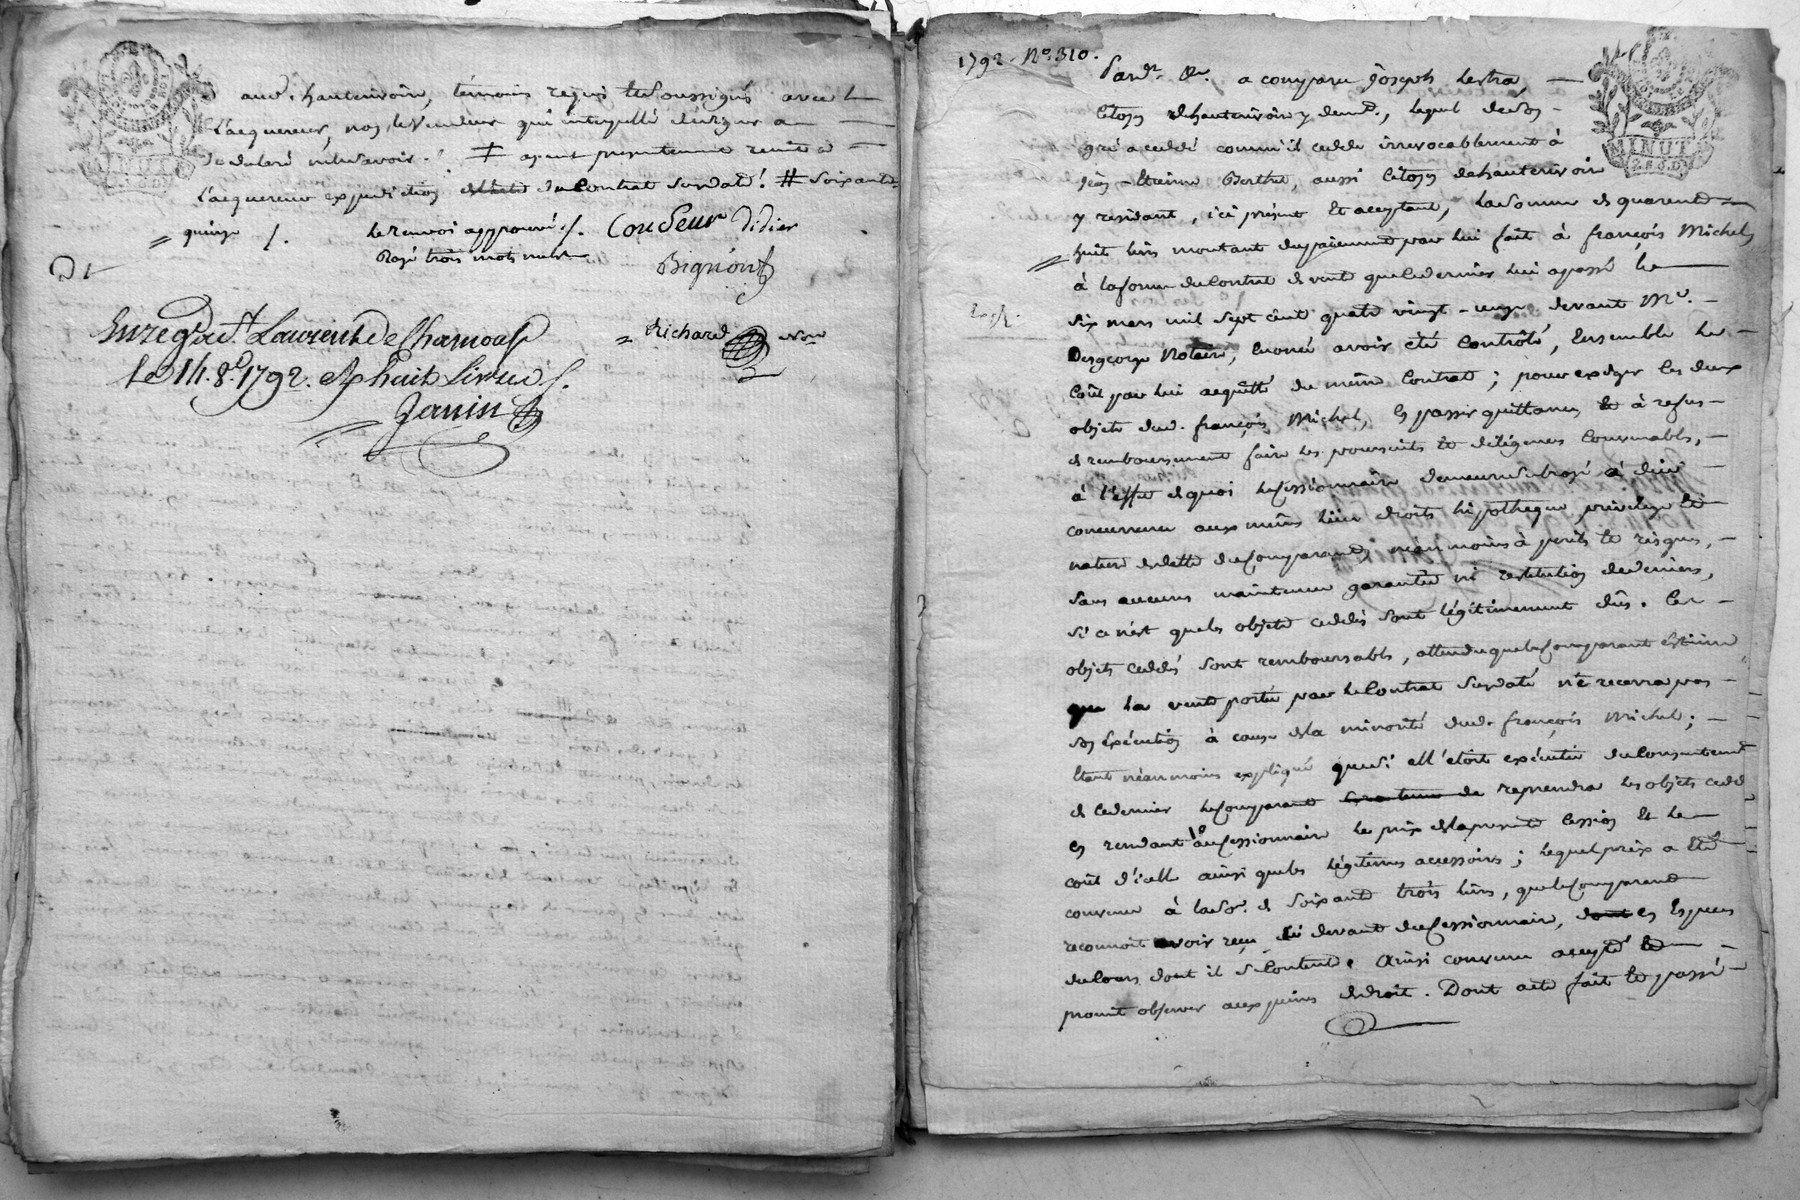 aud. hauterivoire, témoins requis et soussignés avec
l'acquereur, non le vendeur qui interpellé de signer a
declaré ne le savoir. # ayant presentement remis à
l'acquereur expedition du Contrat susdaté. # soixante
quinze /. le renvoi approuvé /. Coudeur Didier
Rayé trois mots nuls Bignon
Enregé. a St. Laurent de Chamousset
le 14. 8e. 1792. Rx huit livres /.
Janin
Richard Nre
MINUT
1792. No. 310.
Pard. &c. a comparu Joseph Lestra
Citoyen d'hauterivoire y demt., lequel de son
gré a ceddé comm'il cedde irrevocablement à
Jean-Etienne Berthet, aussi Citoyen d'hauterivoire
y residant, ici présent et acceptant, la somme de quarente
huit livres montant du paiement par lui fait à françois Michel
à la forme du Contrat de vente que ce dernier lui a passé le
six mars mil sept cent quatre vingt-onze devant Me.
Desgeorge Notaire, enoncé avoir été Contrôlé, Ensemble le
Coût par lui acquitté du même Contrat; pour exiger les deux
objets dud. françois Michel, en passer quittance et à refus
de remboursement faire les poursuites et diligences Convenables,
à l'effet de quoi le Cessionnaire demeure subrogé à due
concurrence aux mêmes lieu droits hipotheque privilege et
nature de dette du Comparant neanmoins à perils et risques,
sans aucune maintenue garantie ni restitution de deniers,
si ce n'est que les objets ceddés sont légitimement dûs. Ces
objets ceddés sont remboursables, attendu que le Comparant estime
que la vente portée par le Contrat susdaté n'e recevra pas
son Exécution à cause de la minorité dud. françois Michel;
Etant néanmoins expliqué que si elle étoit exécutée du Consentement
de ce dernier le Comparant reprendra les objets ceddés
en rendant au Cessionnaire le prix de la presente Cession et le
coût d'icelle ainsi que les légitimes accessoires; lequel prix a été
convenu à la So. de soixante trois livres, que le Comparant
reconnoit avoir reçu ci devant du Cessionnaire, en Especes
du Cours dont il se Contente. Ainsi convenu accepté et
promit observer aux peines de droit. Dont acte fait et passé